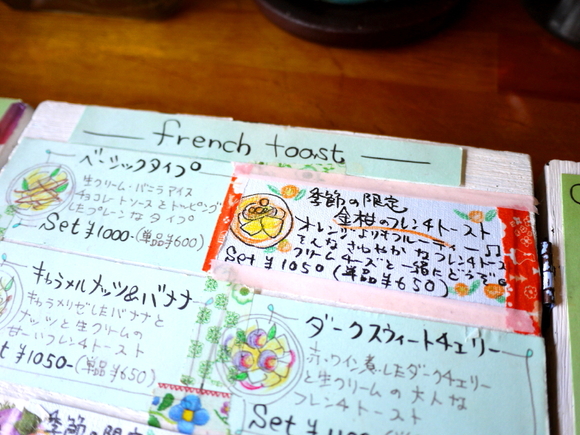 french toast
ベーシックタイプ。
生クリーム・バニラアイス
チョコレートソースをトッピング
したプレーンなタイプ
Set ¥1000-(単品¥600)
季節の限定
金柑のフレンチトースト
オレンジよりもフルーティー♫
そんなさわやかなフレンチトースト
クリームチーズと一緒にどうぞ
Set ¥1050 (単品¥650)
キャラメルナッツ&バナナ
キャラメリゼしたバナナと
ナッツと生クリームの
甘〜いフレンチトースト
¥1050-(単品¥650)
ダークスウィートチェリー
赤ワイン煮したダークチェリー
と生クリームの大人な
フレンチトースト
Set
季節の限定